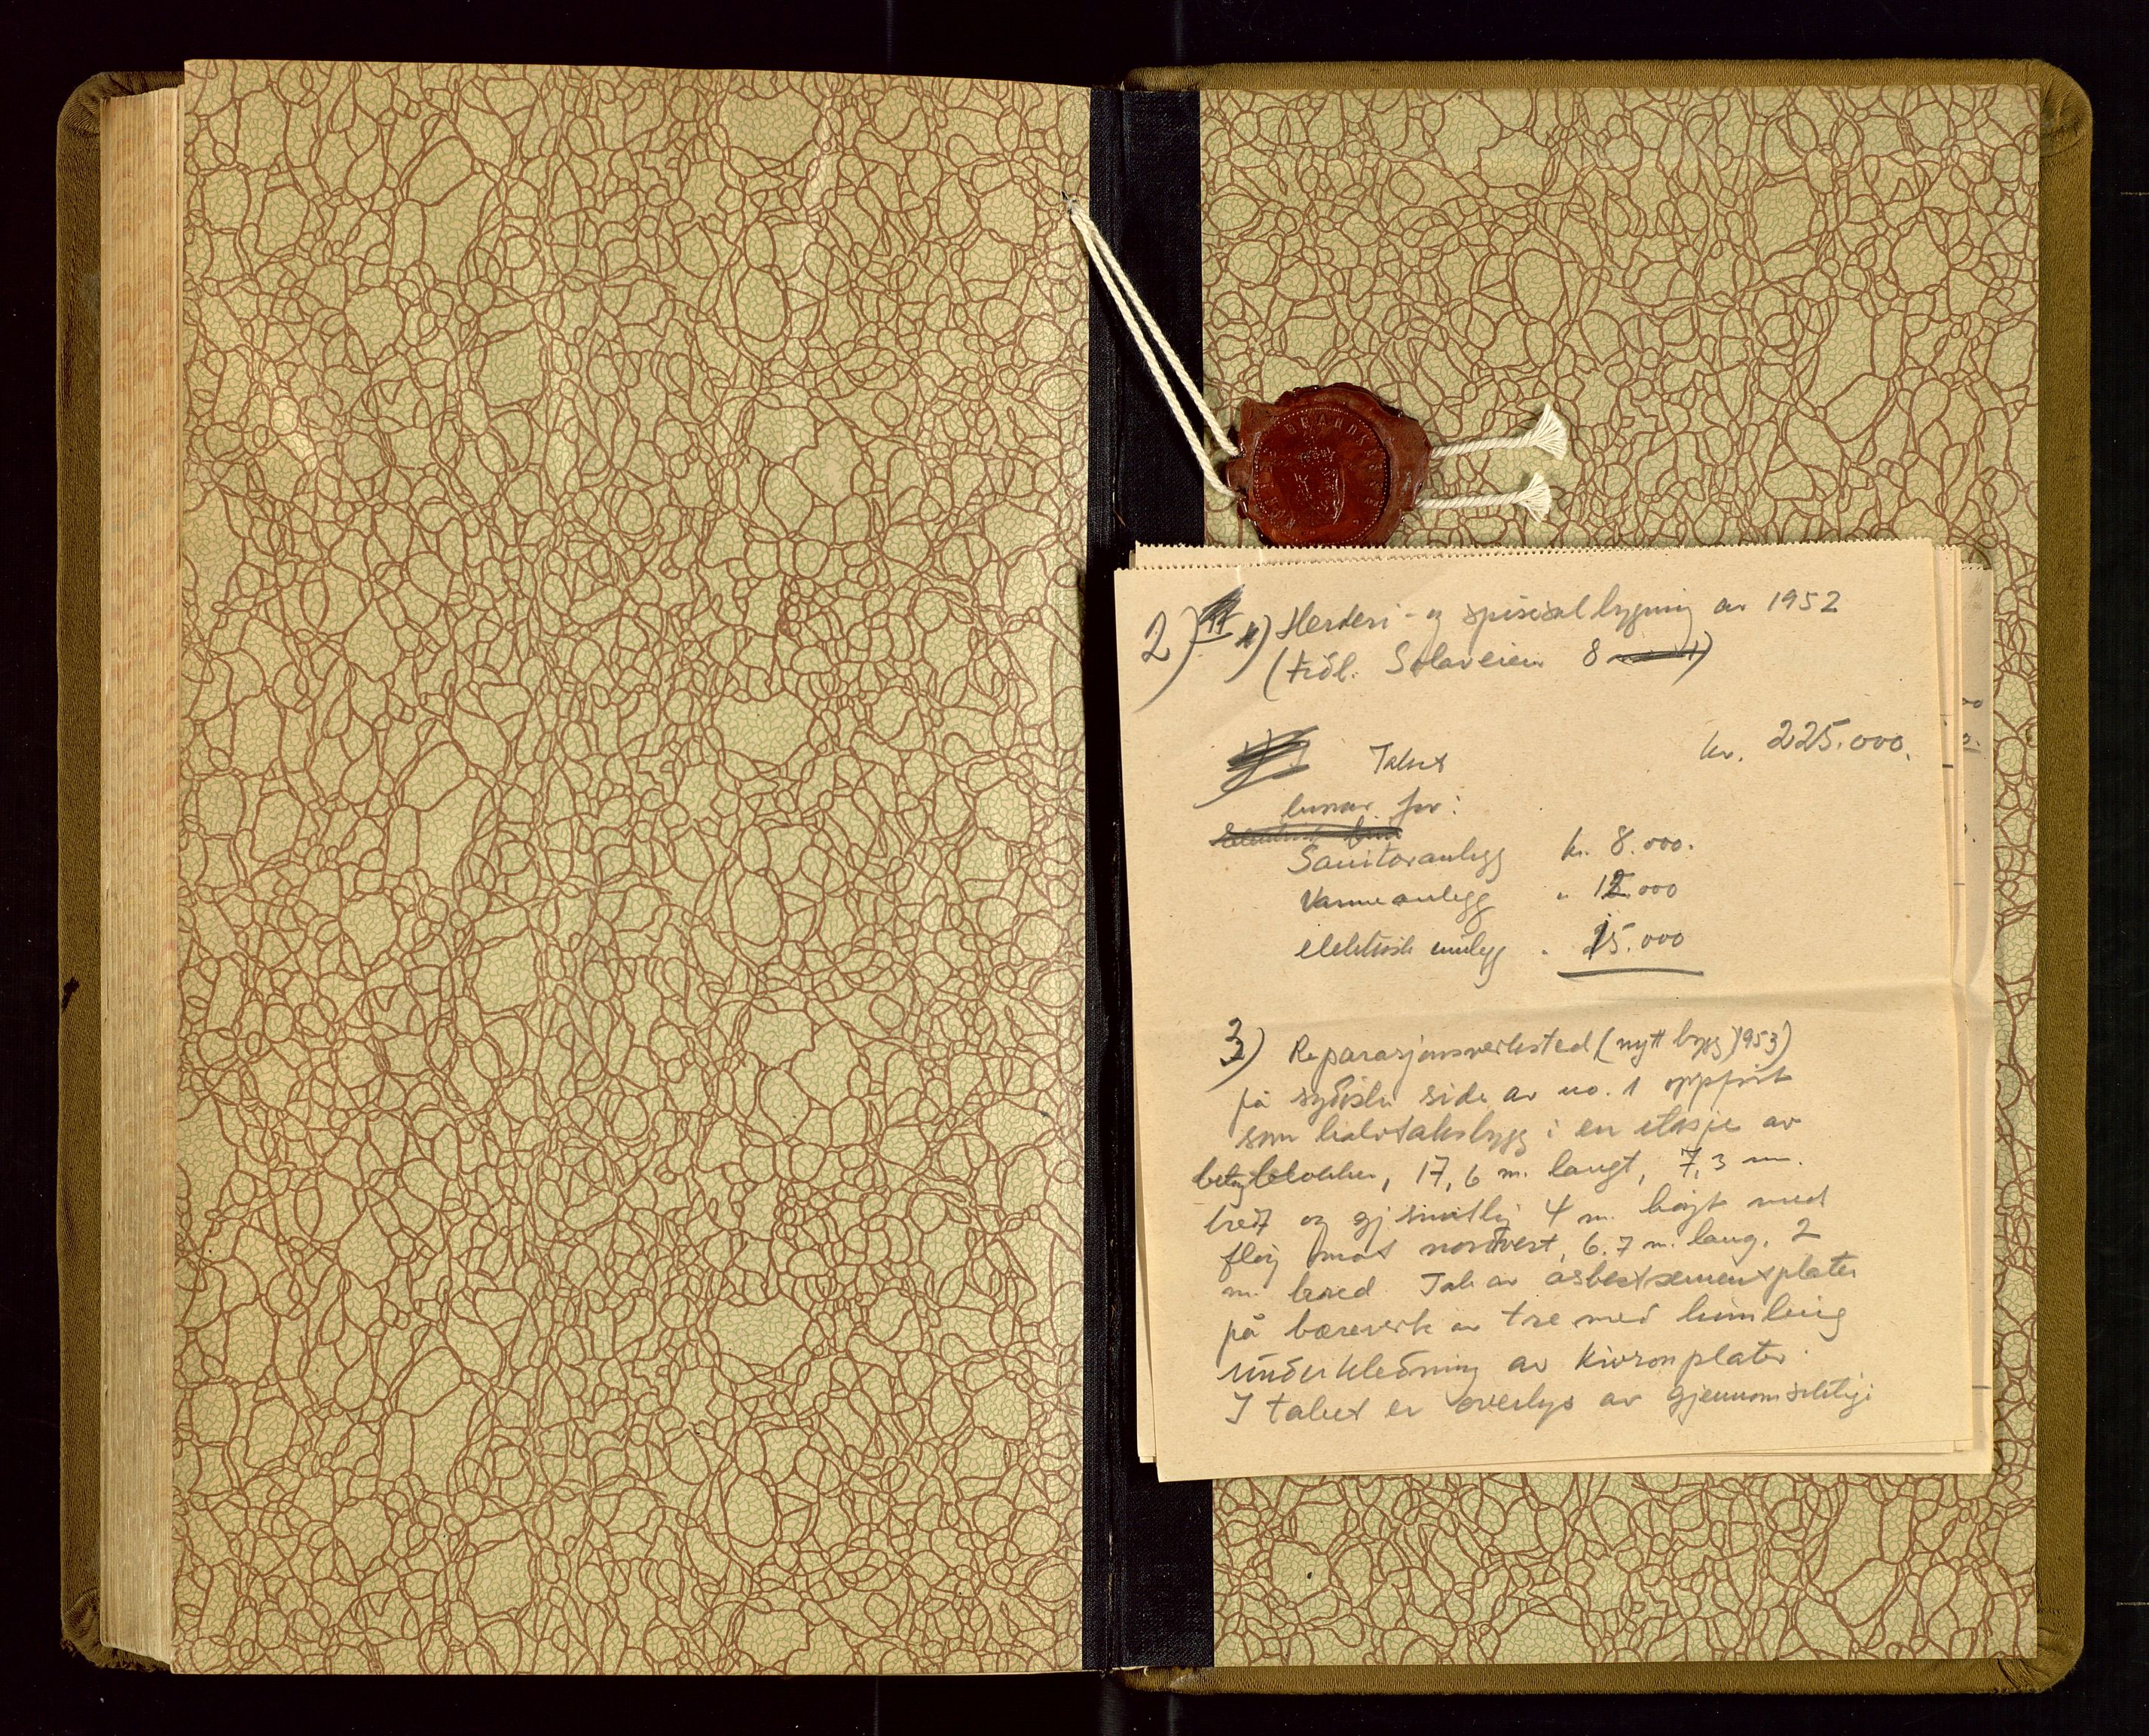 2) Herderi- og spisesalbygning av 1952
(tidl. Solaveien 8)
Takst kr. 225.000.
herav for:
Sanitæranlegg kr. 8.000.
Varmeanlegg " 12.000
elektrisk anlegg " 15.000
3) Reparasjonsverksted (nytt bygg 1953)
på sydøstre side av no. 1 oppført
som halvtaksbygg i en etasje av
betongblokker, 17,6 m. langt, 7,3 m.
bredt og gj.snittlig 4 m. høyt med
fløy mot nordvest, 6.7 m. lang, 2
m. bred. Tak av asbestsementplater
på bæreverk av tre med himling
underkledning av plater.
I taket er overlys av gjennomsiktige